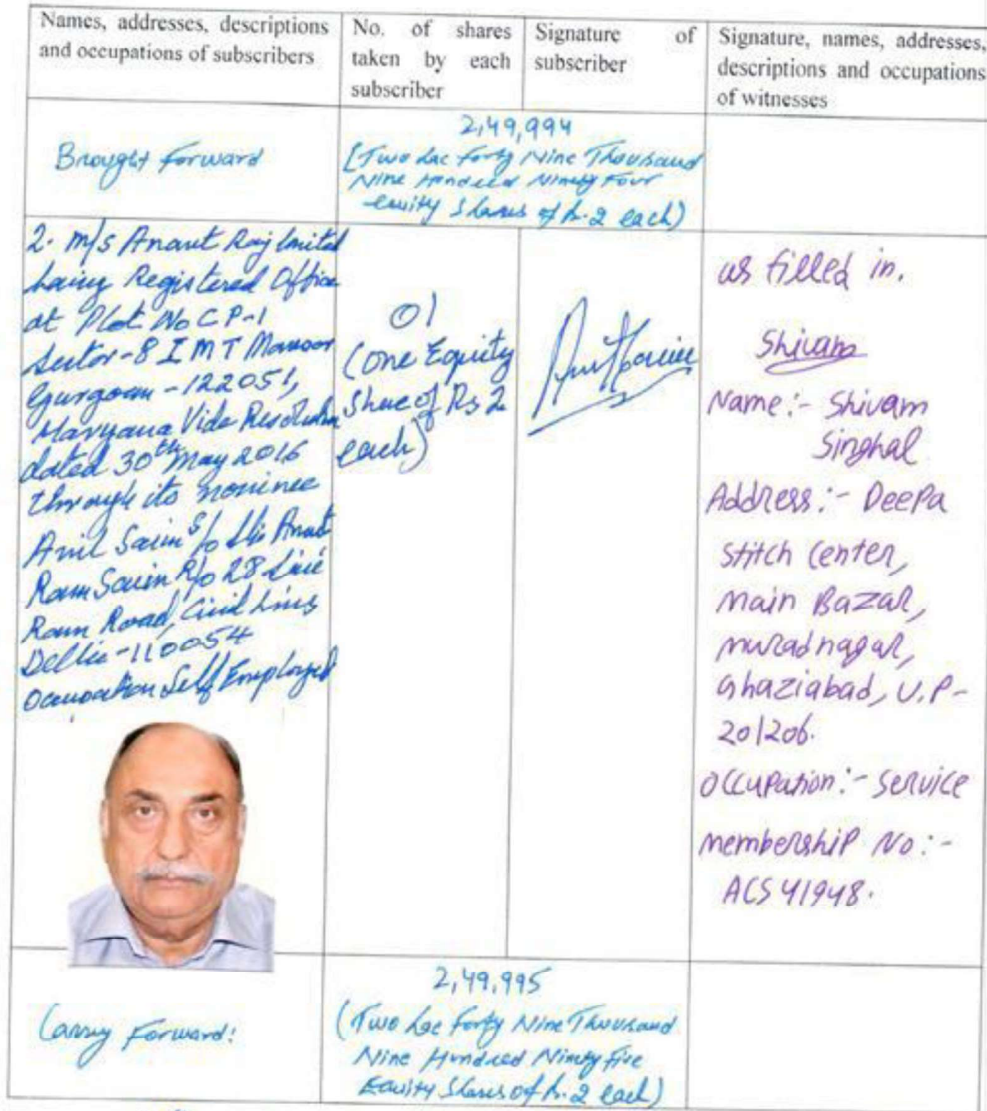 Names, addresses, descriptions
and occupations of subscribers
No. of shares
taken by each
subscriber
Signature of
subscriber
Signature, names, addresses,
descriptions and occupations
of witnesses
Brought forward
2,49,994
(Two Lac forty Nine Thousand
Nine Hundred Ninety Four
equity Shares of Rs. 2 each)
2. M/s Anant Raj Limited
having Registered Office
at Plot No CP-1
Sector-8 IMT Manesar
Gurgaon - 122051,
Haryana Vide Resolution
dated 30th May 2016
through its nominee
Anil Sarin S/o Shri Anant
Ram Sarin R/o 28
Ram Road, Civil Lines
Delhi - 110054
Occupation Self Employed
01
(One Equity
Share of Rs 2
each)
as filled in.
Shivam
Name:- Shivam
Singhal
Address:- Deepa
Stitch Center,
Main Bazar,
muradnagar,
Ghaziabad, U.P-
201206.
Occupation:- Service
membership No:-
ACS 41948.
Carry Forward:
2,49,995
(Two Lac forty Nine Thousand
Nine Hundred Ninety five
Equity Shares of Rs. 2 each)